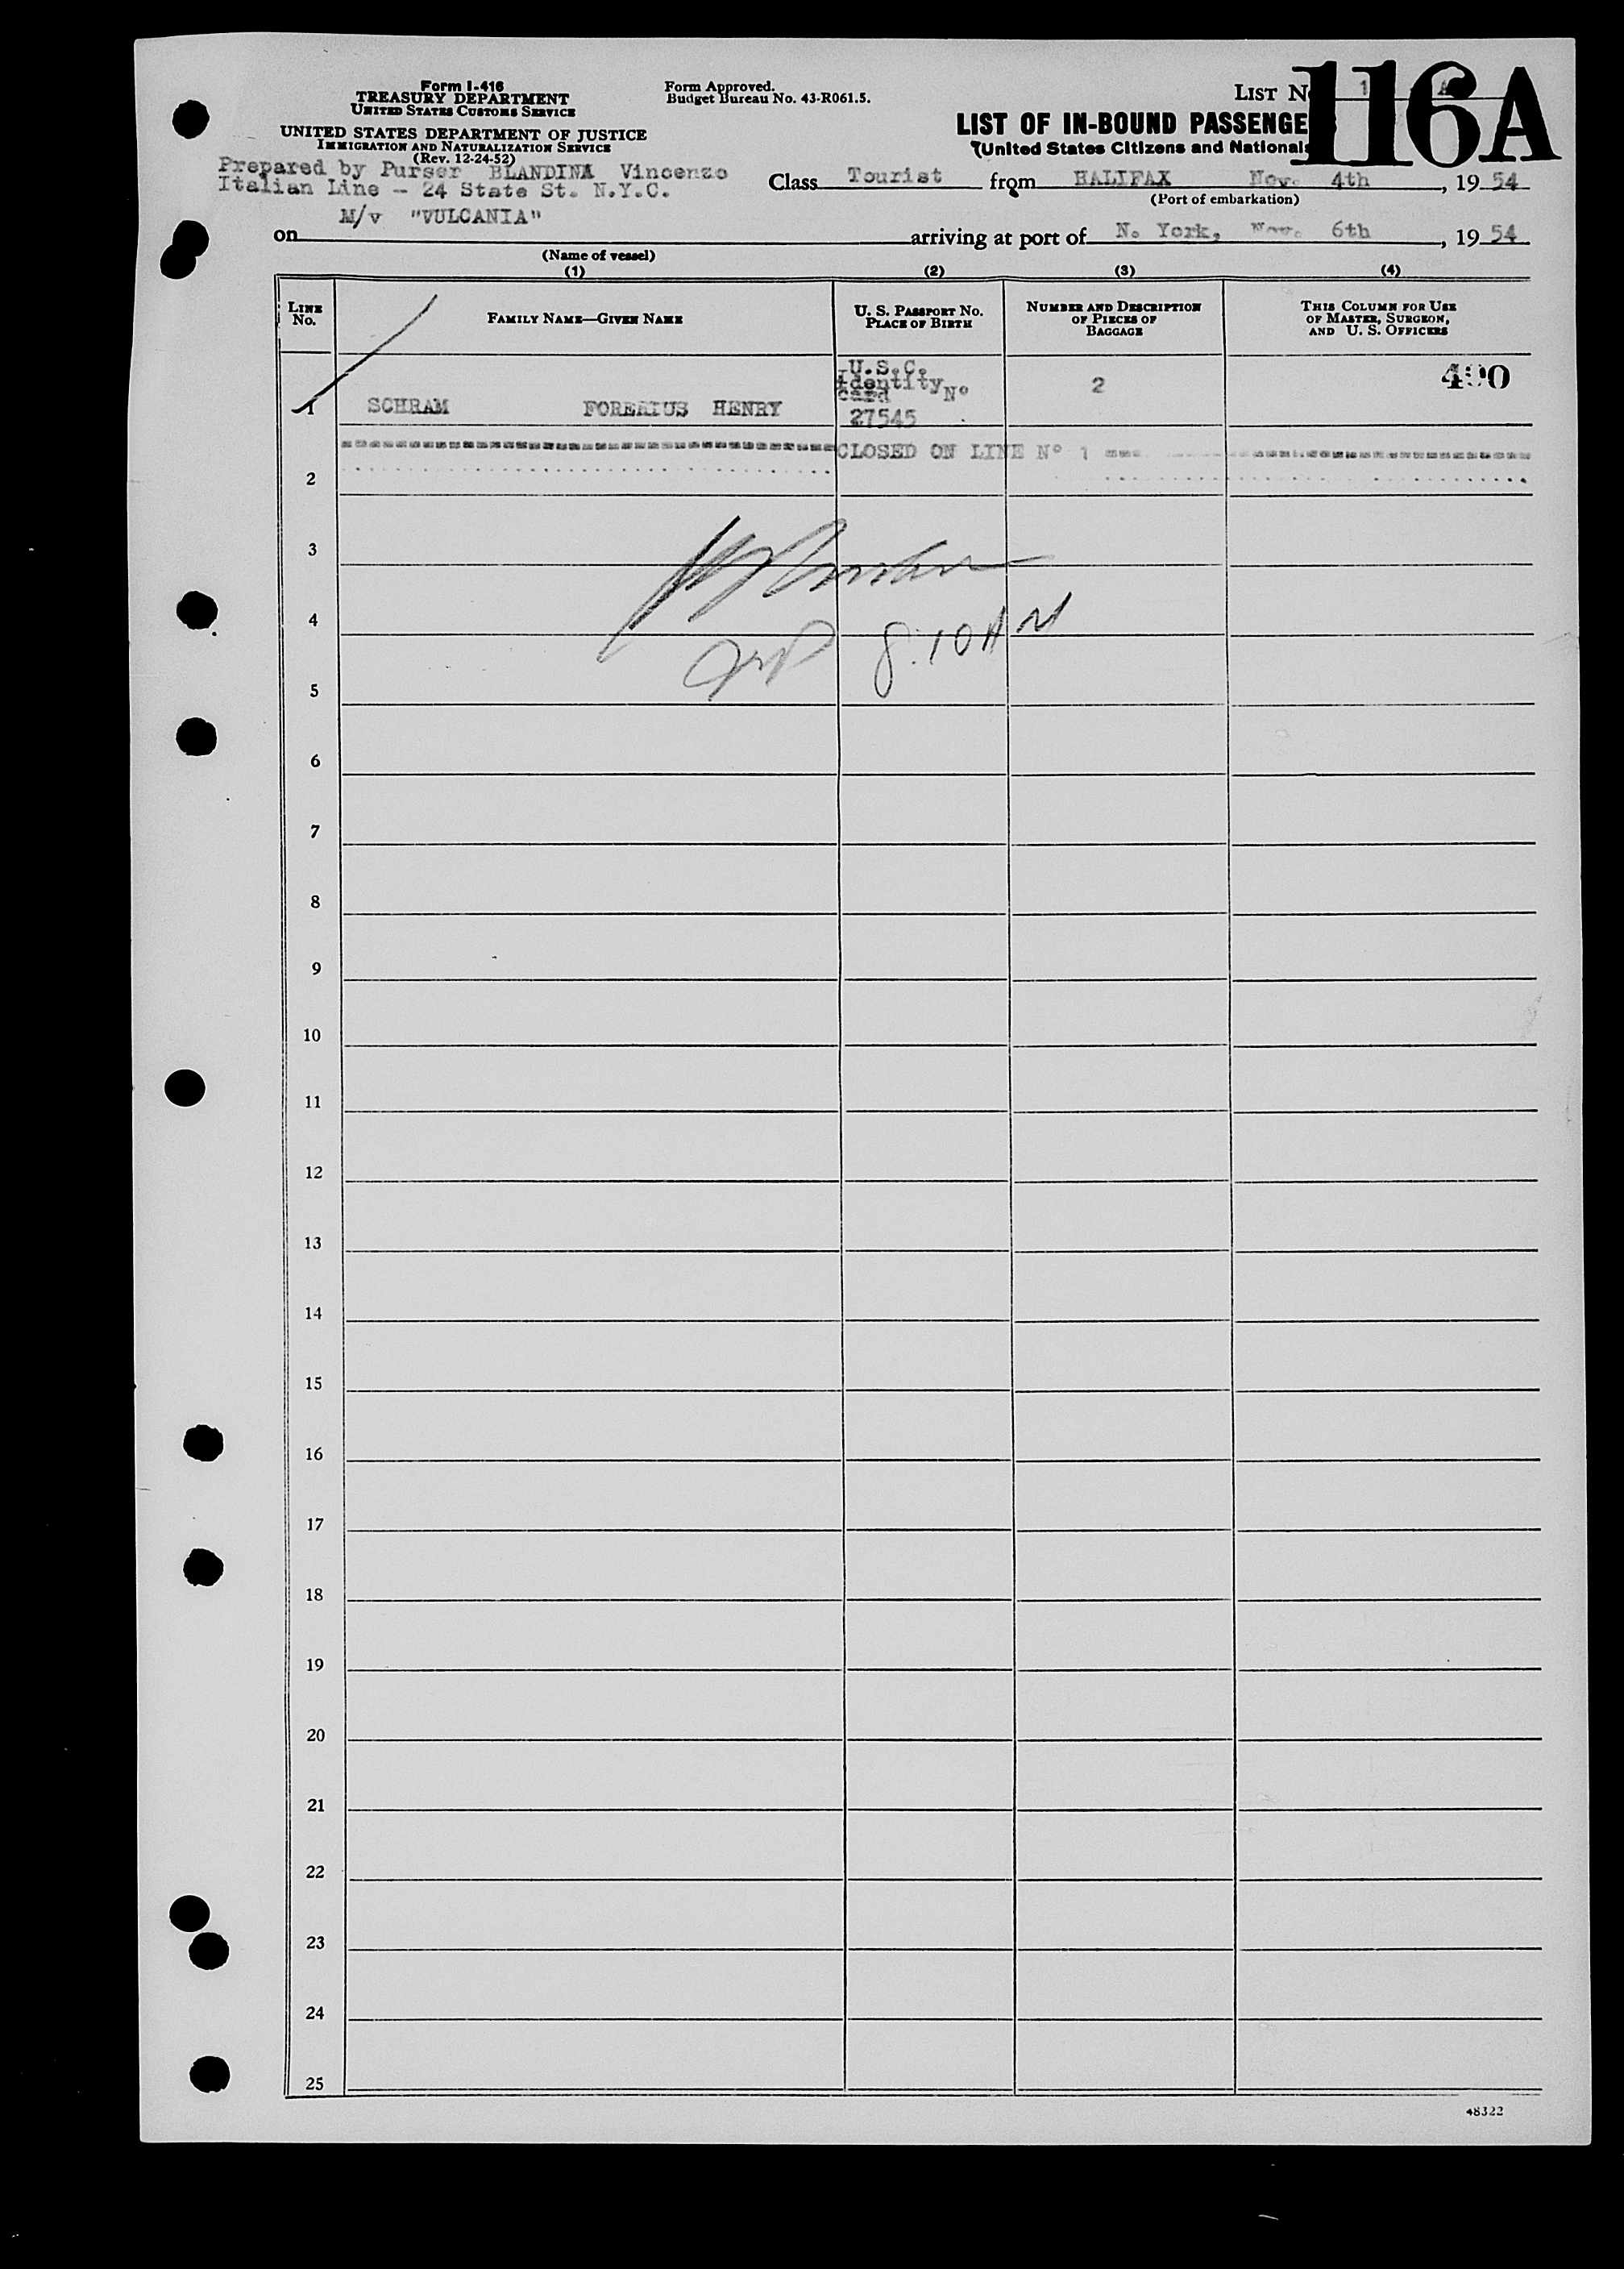 Form I-416
TREASURY DEPARTMENT
UNITED STATES CUSTOMS SERVICE
UNITED STATES DEPARTMENT OF JUSTICE
IMMIGRATION AND NATURALIZATION SERVICE
(Rev. 12-24-52)
Form Approved.
Budget Bureau No. 43-R061.5.
LIST N 1 A
116A
LIST OF IN-BOUND PASSENGE
(United States Citizens and Nationals
Prepared by Purser BLANDINA Vincenzo
Italian Line - 24 State St. N.Y.C.
Class Tourist from HALIFAX Nov. 4th, 19 54
(Port of embarkation)
on M/v "VULCANIA" arriving at port of N. York, Nov. 6th, 19 54
(Name of vessel)
(1) (2) (3) (4)
LINE No.
FAMILY NAME—GIVEN NAME
U. S. PASSPORT No.
PLACE OF BIRTH
NUMBER AND DESCRIPTION
OF PIECES OF
BAGGAGE
THIS COLUMN FOR USE
OF MASTER, SURGEON,
AND U. S. OFFICERS
U.S.C.
identity
card N°
1 SCHRAM HENRY 27545 2 490
CLOSED ON LINE N° 1
2
3
4
8:10 AM
5
6
7
8
9
10
11
12
13
14
15
16
17
18
19
20
21
22
23
24
25
48322